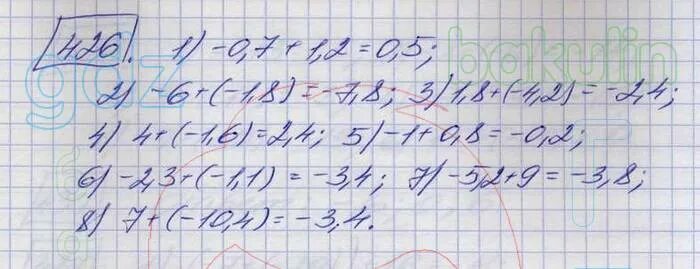 426. 1) -0,7 + 1,2 = 0,5;
2) -6 + (-1,8) = -7,8; 3) 1,8 + (-4,2) = -2,4;
4) 4 + (-1,6) = 2,4; 5) -1 + 0,8 = -0,2;
6) -2,3 + (-1,1) = -3,4; 7) -5,2 + 9 = -3,8;
8) 7 + (-10,4) = -3,4.
gdz
bakulin